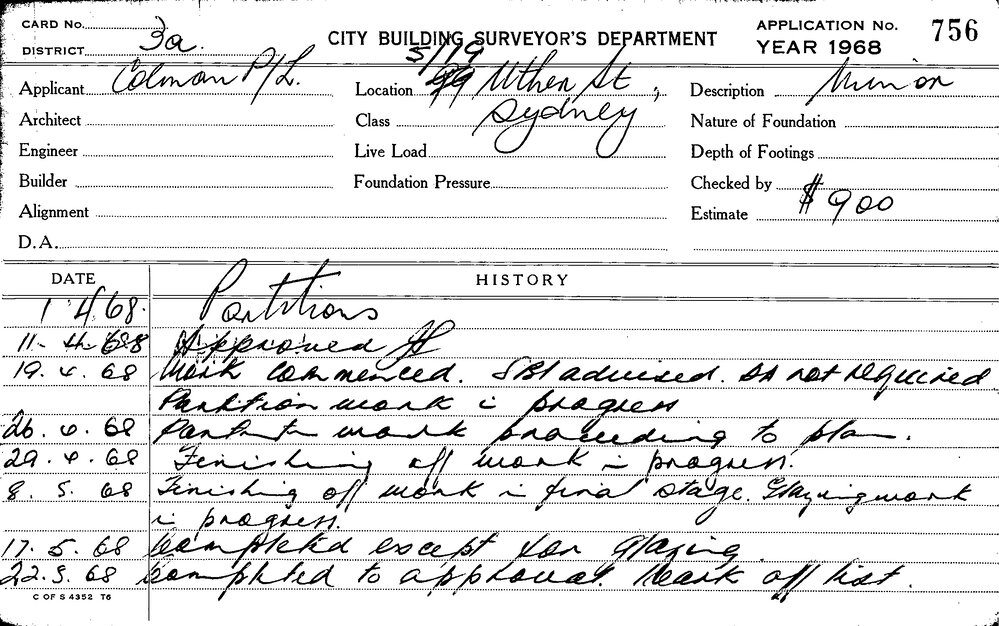 CARD No.
DISTRICT 3a.
CITY BUILDING SURVEYOR'S DEPARTMENT
APPLICATION No. 756
YEAR 1968
Applicant Colman P/L.
Location 5/19 Uther St,
Description Minor
Architect
Class Sydney
Nature of Foundation
Engineer
Live Load
Depth of Footings
Builder
Foundation Pressure
Checked by
Alignment
Estimate $900
D.A.
DATE HISTORY
1 4/68. Partitions
11- 4- 68 Approved
19. 4. 68 Work commenced. advised. not required
Partition work i progress
26. 4. 68 work proceeding to plan.
29. 4. 68 Finishing off work in progress.
8. 5. 68 Finishing off work in final stage. Glazing work
i progress.
17. 5. 68 Completed except for glazing.
22. 5. 68 Completed to approval. Mark off list.
C OF S 4352 T6